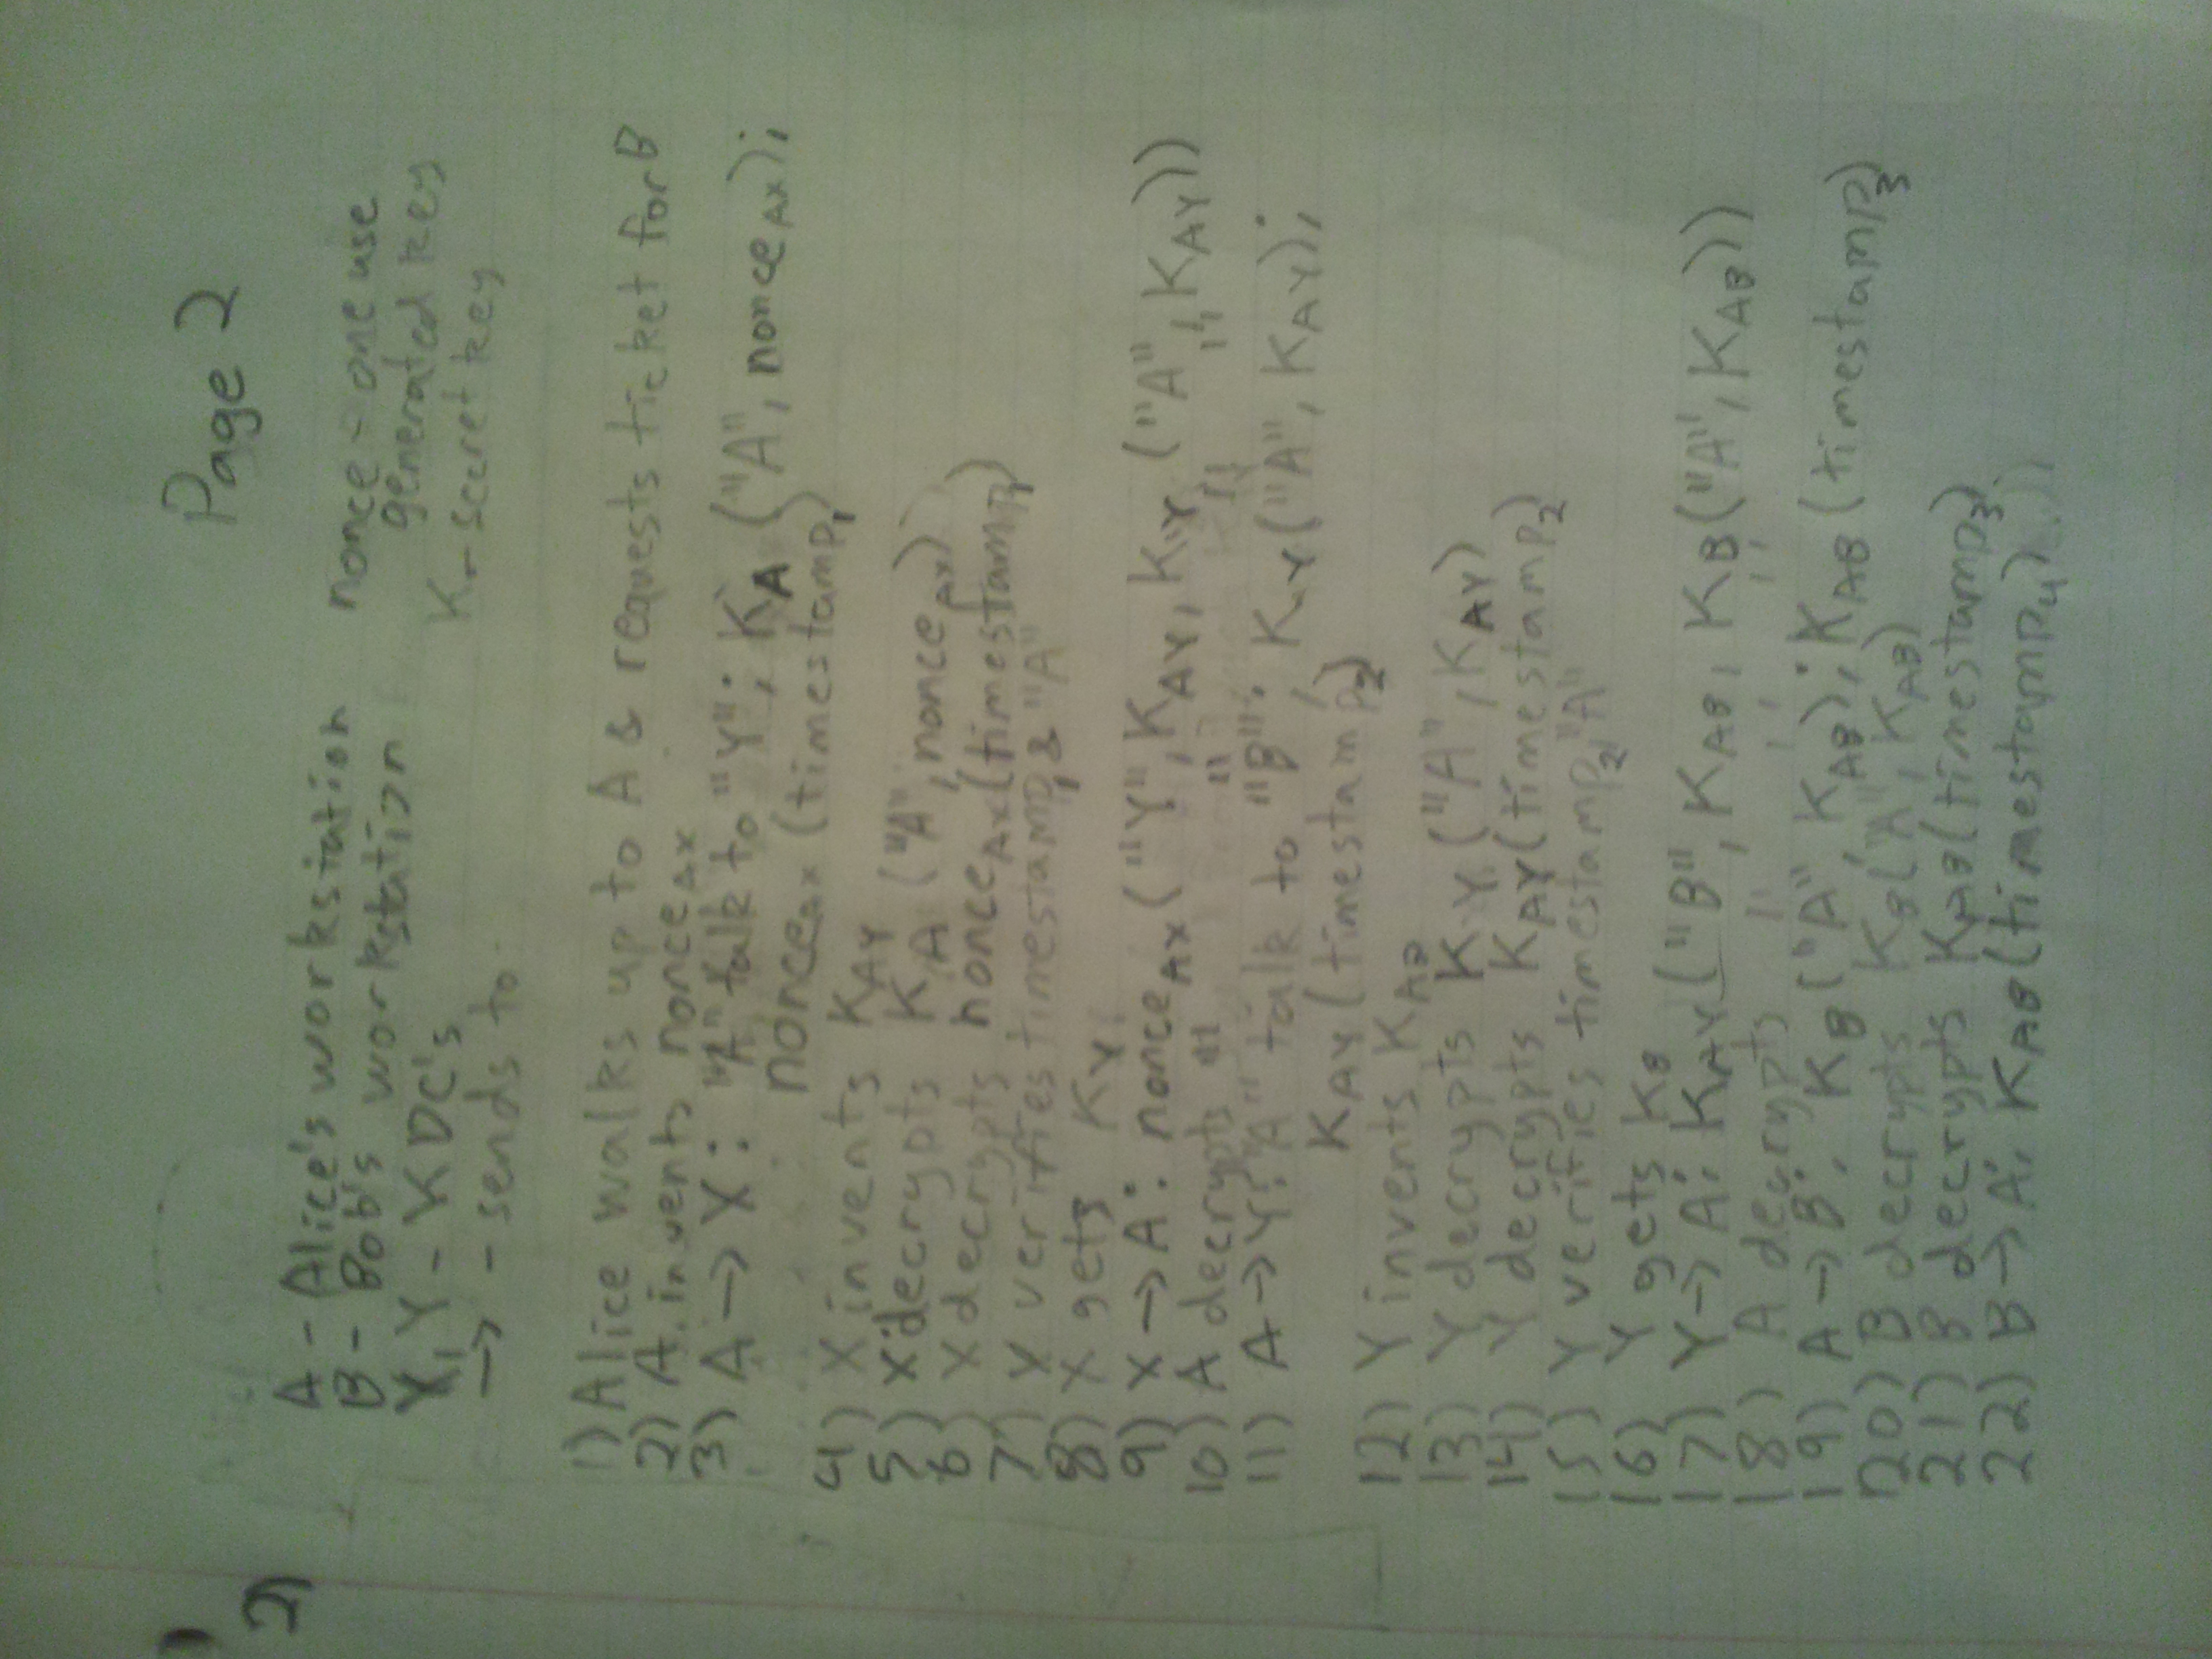 Page 2
2)
A - Alice's workstation
B - Bob's workstation
X, Y - KDC's
→ - sends to
nonce - one use
generated key
K - secret key
1) Alice walks up to A & requests ticket for B
2) A invents nonce_AX
3) A → X: "A" talk to "Y"; K_A ("A", nonce_AX);
nonce_AX (timestamp_1)
4) X invents K_AY
5) X decrypts K_A ("A", nonce_AX)
6) X decrypts nonce_AX (timestamp_1)
7) X verifies timestamp_1 & "A"
8) X gets K_Y
9) X → A: nonce_AX ("Y", K_AY, K_Y ("A", K_AY))
10) A decrypts " " " "
11) A → Y: "A" talk to "B"; K_Y ("A", K_AY);
K_AY (timestamp_2)
12) Y invents K_AB
13) Y decrypts K_Y ("A", K_AY)
14) Y decrypts K_AY (timestamp_2)
15) Y verifies timestamp_2, "A"
16) Y gets K_B
17) Y → A: K_AY ("B", K_AB, K_B ("A", K_AB))
18) A decrypts " " "
19) A → B: K_B ("A", K_AB); K_AB (timestamp_3)
20) B decrypts K_B ("A", K_AB)
21) B decrypts K_AB (timestamp_3)
22) B → A: K_AB (timestamp_4)